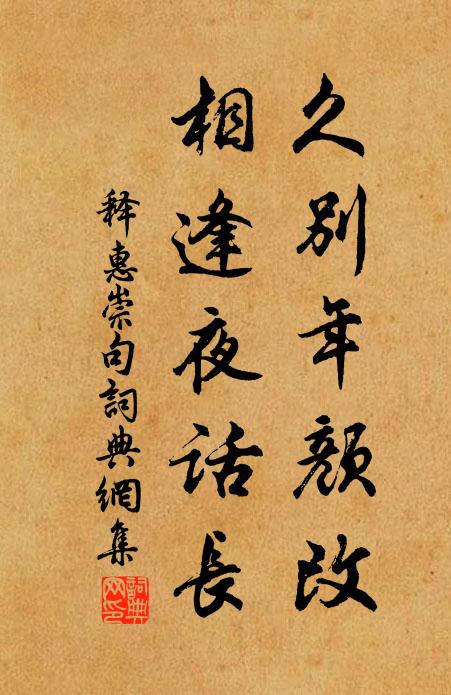 久别年颜改
相逢夜话长
释惠崇句詞典網集
詞典網印